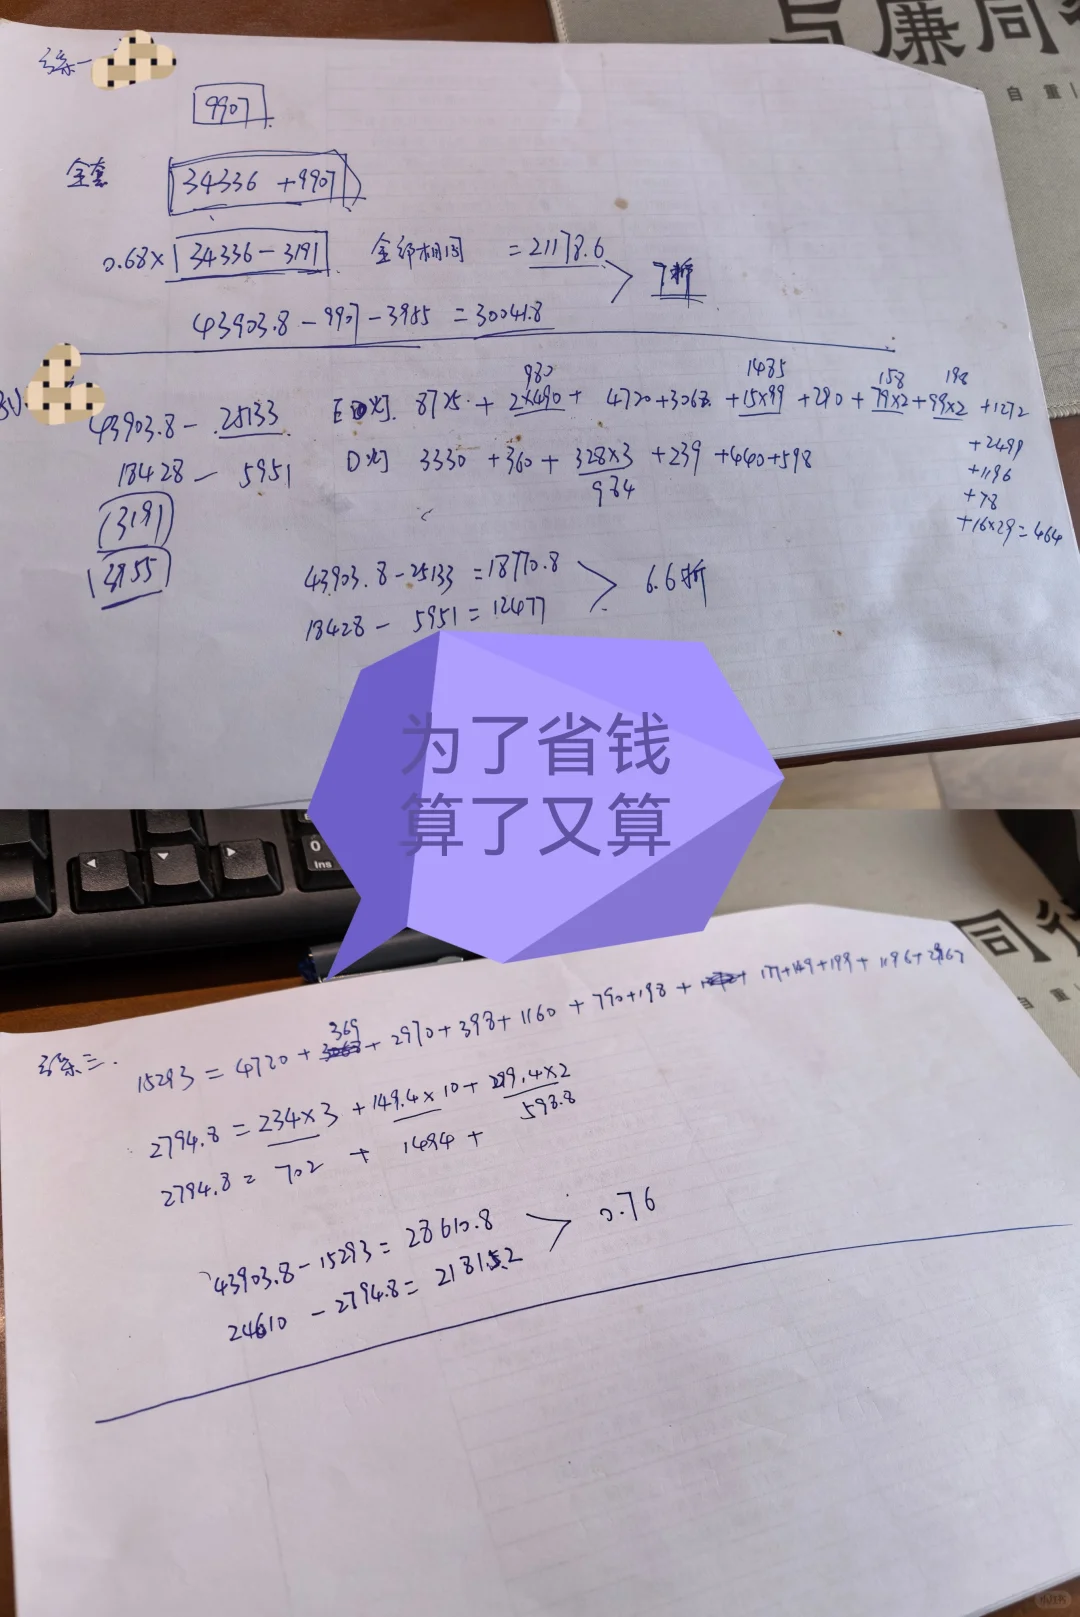 与廉同行
自重
9907
全套 34336 + 9907
0.68 × 34336 - 3191 全部相同 = 21178.6
7折
43903.8 - 9907 - 3955 = 30041.8
43903.8 - 25133
18428 - 5951
3191
3955
980 1485 158 198
灯 8725 + 2×490 + 4720 + 3068 + 15×99 + 290 + 79×2 + 99×2 + 1272
+2499
+1196
+78
+16×29=464
D灯 3330 + 360 + 328×3 + 239 + 440 + 598
984
43903.8 - 25133 = 18770.8
6.6折
18428 - 5951 = 12477
为了省钱
算了又算
0
Ins
同行
自 重
369
15293 = 4720 + + 2970 + 398 + 1160 + 790 + 198 + + 177 + 149 + 199 + 1196 +
2794.8 = 234×3 + 149.4×10 + 299.4×2
598.8
2794.8 = 702 + 1494 +
43903.8 - 15293 = 28610.8
0.76
24610 - 2794.8 = 21815.2